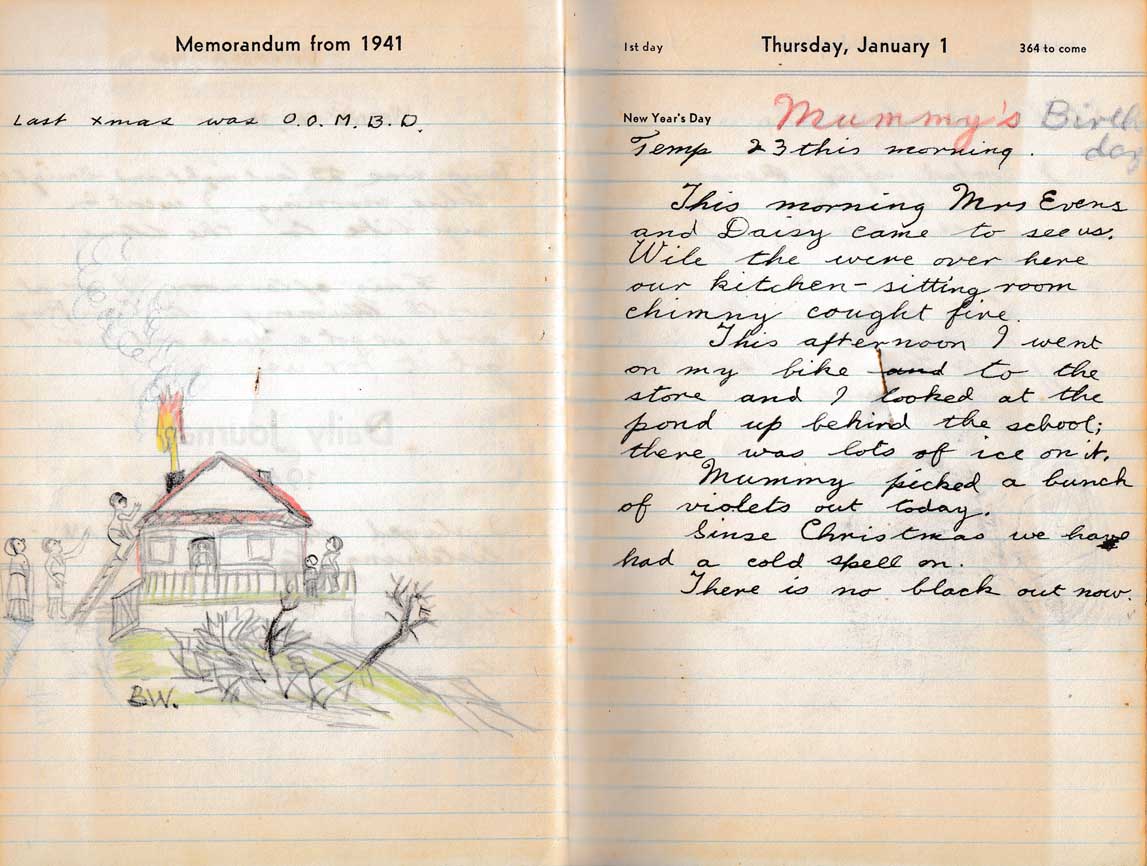 Memorandum from 1941
Last xmas was O.O.M.B.D.
BW.
1st day
Thursday, January 1
364 to come
New Year's Day
Mummy's Birth
day
Temp 23 this morning.
This morning Mrs Evens
and Daisy came to see us.
Wile the were over here
our kitchen-sitting room
chimny cought fire.
This afternoon I went
on my bike and to the
store and I looked at the
pond up behind the school;
there was lots of ice on it.
Mummy picked a bunch
of violets out today.
Sinse Christmas we have
had a cold spell on.
There is no black out now.